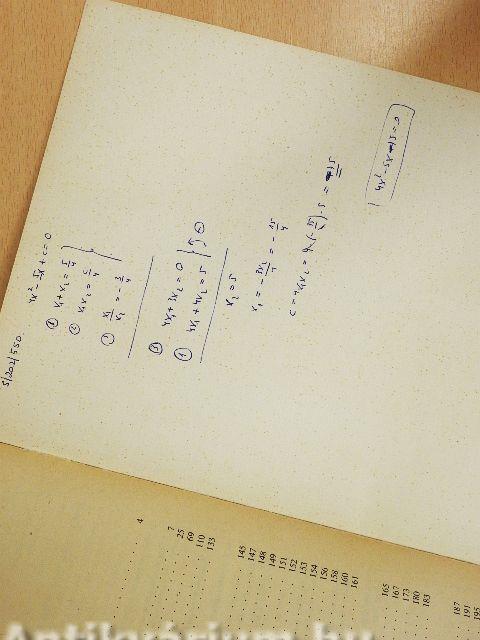 5/202/550.
4x² - 5x + c = 0
① x₁ + x₂ = 5/4
② x₁x₂ = c/4
③ x₁/x₂ = -3/4
③ 4x₁ + 3x₂ = 0
① 4x₁ + 4x₂ = 5
x₂ = 5
x₁ = -3x₂/4 = -15/4
c = 4x₁x₂
4x² - 5x - 75 = 0
4
7
25
69
110
133
145
147
148
149
151
152
153
154
156
158
160
161
165
167
173
180
183
187
191
195
Antikvárium.hu